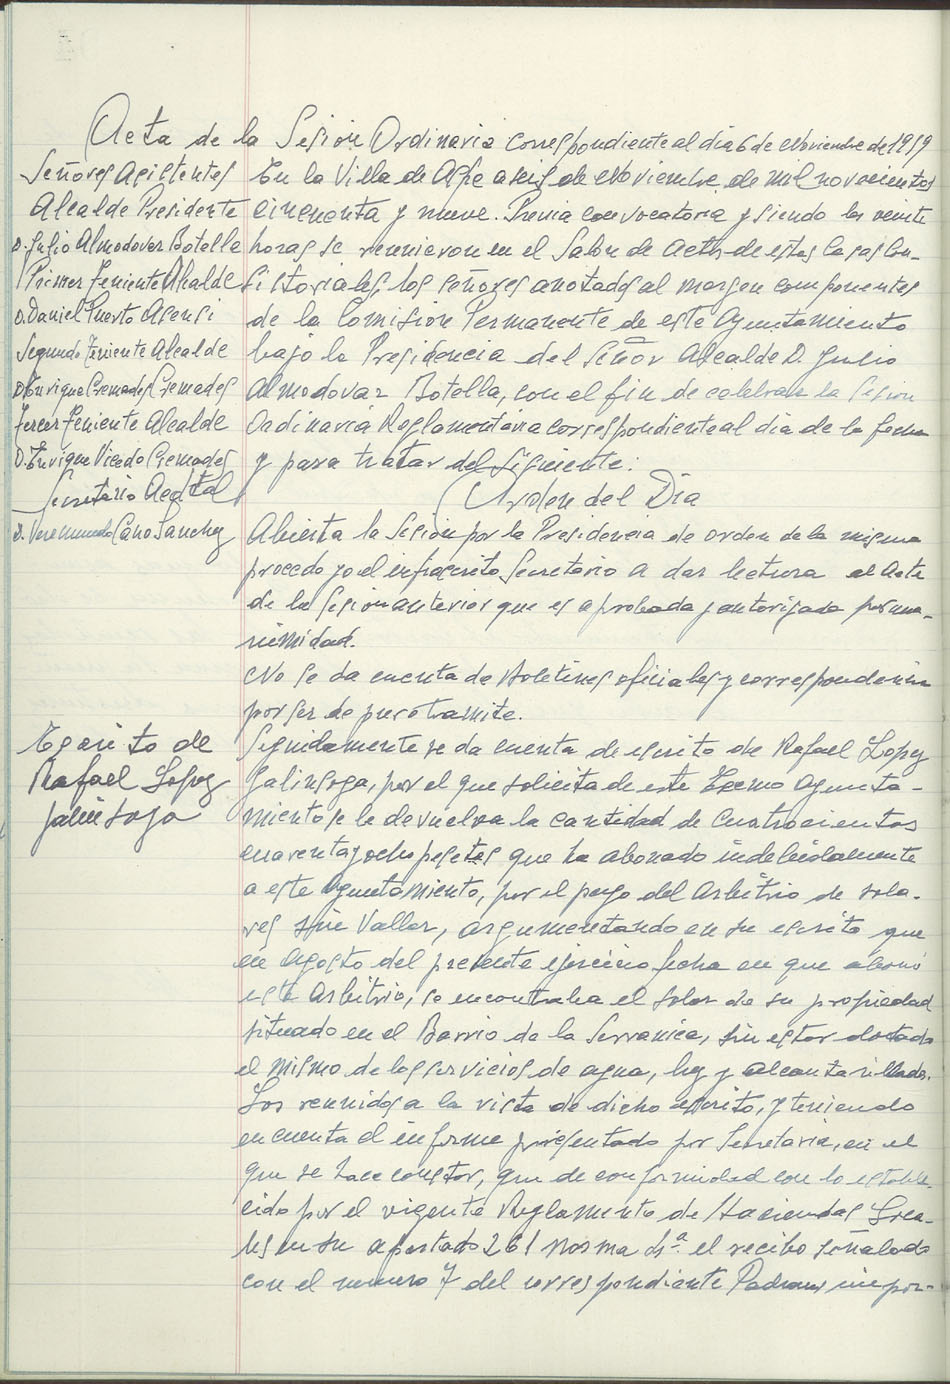 Acta de la Sesión Ordinaria correspondiente al dia 6 de Noviembre de 1959
Señores Asistentes
Alcalde Presidente
D. Julio Almodovar Botella
Primer Teniente Alcalde
D. Daniel Puerto Asensi
Segundo Teniente Alcalde
D. Enrique Cremades Cremades
Tercer Teniente Alcalde
D. Enrique Vicedo Cremades
Secretario Acctal
D. Veremundo Cano Sanchez
En la Villa de Aspe a seis de Noviembre de mil novecientos
cincuenta y nueve. Previa convocatoria y siendo las veinte
horas se reunieron en el Salon de Actos de estas Casas Con-
sistoriales, los señores anotados al margen componentes
de la Comision Permanente de este Ayuntamiento
bajo la Presidencia del Señor Alcalde D. Julio
Almodovar Botella, con el fin de celebrar la Sesion
Ordinaria Reglamentaria correspondiente al dia de la fecha
y para tratar del siguiente:
Orden del Dia
Abierta la Sesion por la Presidencia de orden de la misma
procedo yo el infrascrito Secretario a dar lectura al Acta
de la Sesion anterior que es aprobada y autorizada por una-
nimidad.
No se da cuenta de Boletines oficiales y correspondencia
por ser de puro tramite.
Escrito de
Rafael Lopez
Galinsoga
Seguidamente se da cuenta de escrito de Rafael Lopez
Galinsoga, por el que solicita de este Excmo Ayunta-
miento se le devuelva la cantidad de cuatrocientas
cuarenta y ocho pesetas que ha abonado indebidamente
a este Ayuntamiento, por el pago del arbitrio de sola-
res sin Vallar, argumentando en su escrito que
en Agosto del presente ejercicio fecha en que abonó
este arbitrio, se encontraba el solar de su propiedad
situado en el Barrio de la Serranica, sin estar dotado
el mismo de los servicios de agua, luz y alcantarillado.
Los reunidos a la vista de dicho escrito, y teniendo
en cuenta el informe presentado por Secretaria, en el
que se hace constar, que de conformidad con lo estable-
cido por el vigente Reglamento de Haciendas Loca-
les en su apartado 261 norma 4ª. el recibo señalado
con el numero 7 del correspondiente Padron, impor-